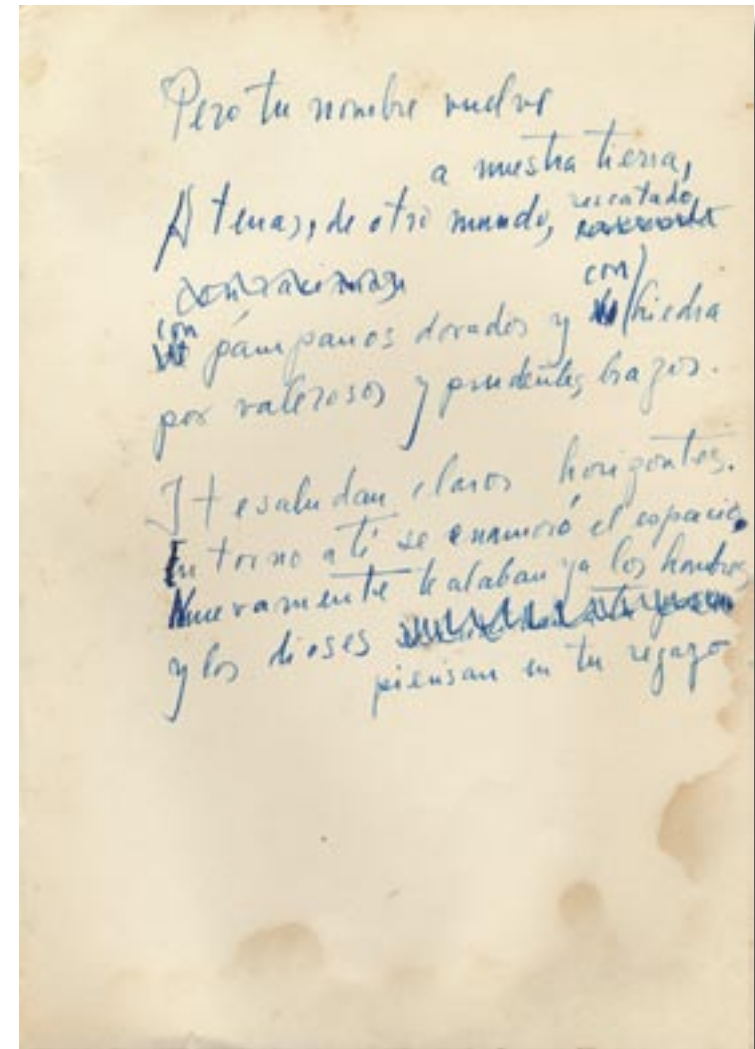 Pero tu nombre vuelve
a nuestra tierra,
Atenas, de otro mundo, rescatado,
con pámpanos dorados y con hiedra
por valerosos y prudentes brazos.
Y te saludan claros horizontes.
En torno a ti se enamoró el espacio,
Nuevamente te alaban ya los hombres
y los dioses
piensan en tu regazo